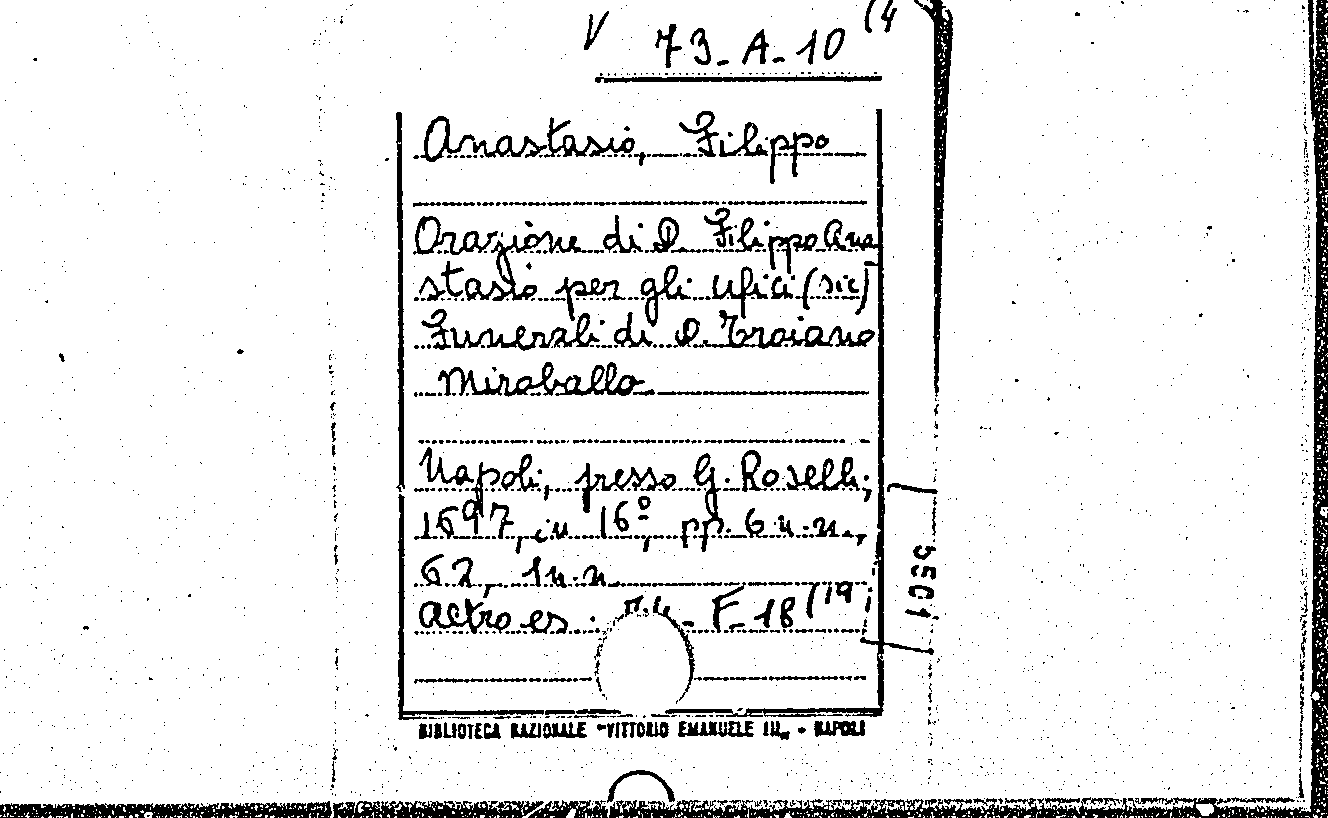 V 73-A-10 (4
Anastasio, Filippo
Orazione di D. Filippo Ana
stasio per gli ufici (sic)
Funerali di D. Troiano
Miroballo
Napoli, presso G. Roselli;
1697, in 16º, pp. 6 n.n.,
62, 1 n.n.
Altro es. - F-18 (19
5501
BIBLIOTECA NAZIONALE "VITTORIO EMANUELE III" - NAPOLI